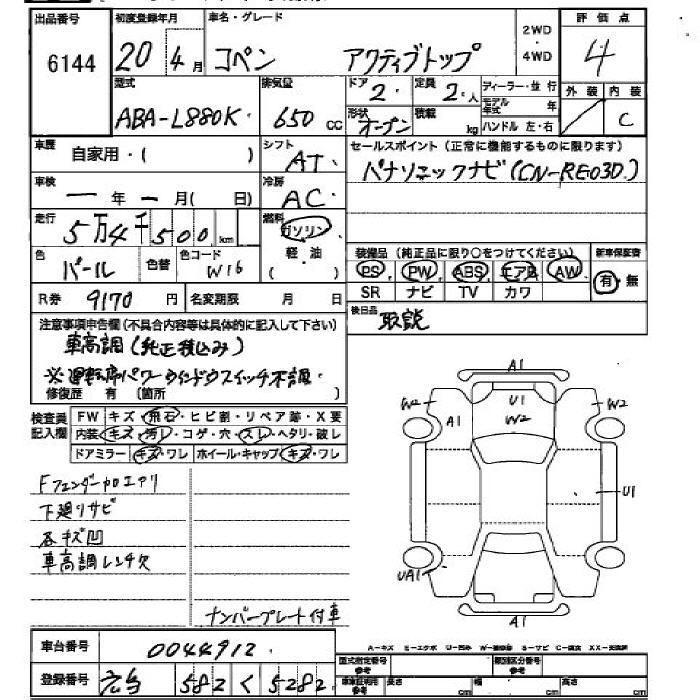 出品番号
6144
初度登録年月
20年4月
車名・グレード
コペン アクティブトップ
2WD
・
4WD
評価点
4
型式
ABA-L880K
排気量
650cc
ドア
2
定員
2人
ディーラー・並行
モデル年式 年
外装 内装
C
形状
オープン
積載
kg
ハンドル 左・右
車歴
自家用・( )
シフト
AT
セールスポイント(正常に機能するものに限ります)
パナソニックナビ(CN-RE03D)
車検
一年 一月( 日)
冷房
AC
走行
5万4千500km
燃料
ガソリン
軽・油
( )
色
パール
色替
色コード
W16
装備品(純正品に限り○をつけてください)
PS PW ABS エアB AW
SR ナビ TV カワ
新車保証書
有・無
R券 9170円
名変期限 月 日
後日品
取説
注意事項申告欄(不具合内容等は具体的に記入して下さい)
車高調(純正積込み)
※運転席パワーウインドウスイッチ不調
修復歴 有 (箇所 )
検査員
記入欄
FW キズ・飛石・ヒビ割・リペア跡・X要
内装 キズ・汚レ・コゲ・穴・スレ・ヘタリ・破レ
ドアミラー キズ・ワレ ホイール・キャップ キズ・ワレ
Fフェンダー加工アリ
下廻リサビ
各キズ凹
車高調レンチ欠
ナンバープレート付車
A1
W2 U1 W2
A1 W2
U1
UA1
A1
車台番号
0044912
登録番号
582 く 5282
型式指定番号
参考
類別区分番号
参考
長さ cm 幅 cm 高さ cm